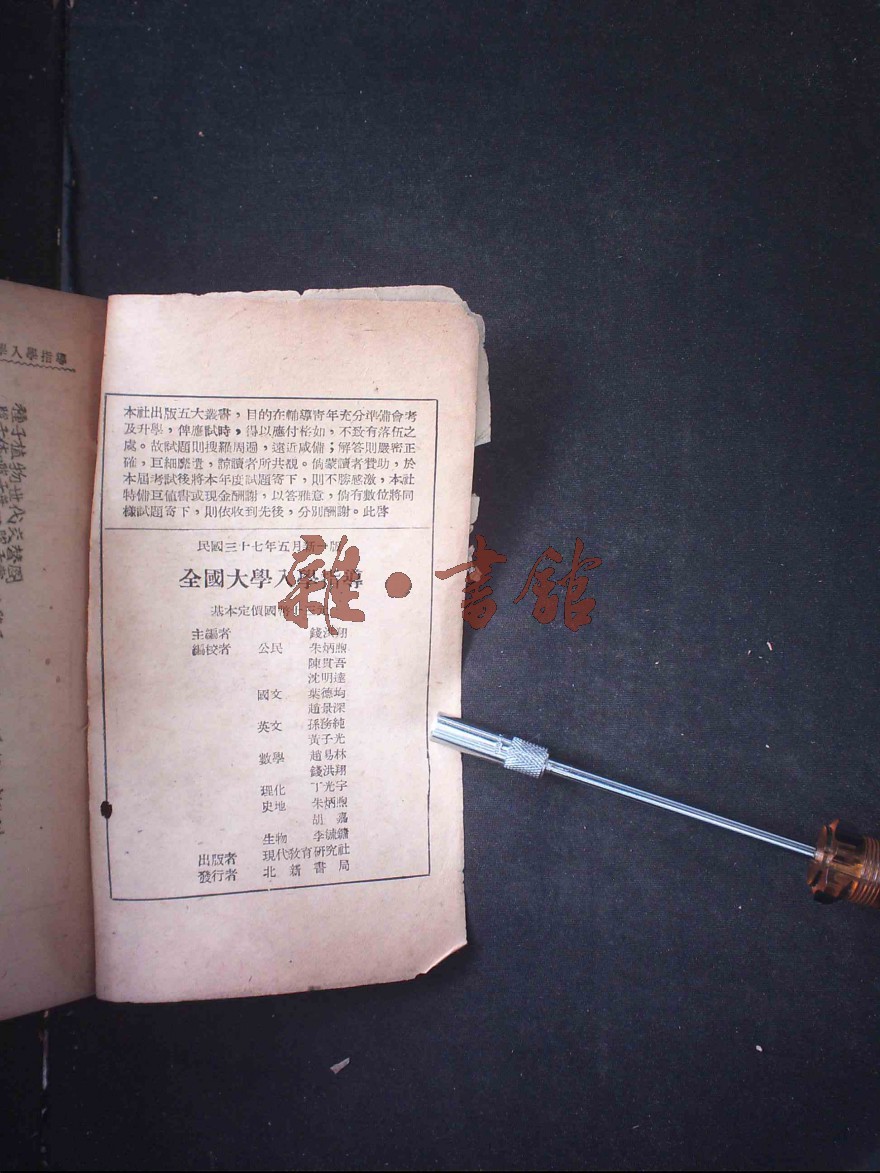 學入學指導
種子植物世代交替圖
本社出版五大叢書，目的在輔導靑年充分準備會考
及升學，俾應試時，得以應付裕如，不致有落伍之
處。故試題則搜羅周遍，遠近咸備；解答則嚴密正
確，巨細靡遺，諒讀者所共覩。倘蒙讀者贊助，於
本屆考試後將本年度試題寄下，則不勝感激，本社
特備巨値書或現金酬謝，以答雅意，倘有數位將同
樣試題寄下，則依收到先後，分別酬謝。此啓
民國三十七年五月新一版
全國大學入學指導
基本定價國幣
主編者 錢洪翔
編校者 公民 朱炳煦
陳貫吾
沈明達
國文 葉德均
趙景深
英文 孫務純
黃子光
數學 趙易林
錢洪翔
理化 丁光宇
史地 朱炳煦
胡 嘉
生物 李誠鏞
出版者 現代敎育硏究社
發行者 北新書局
雜·書館